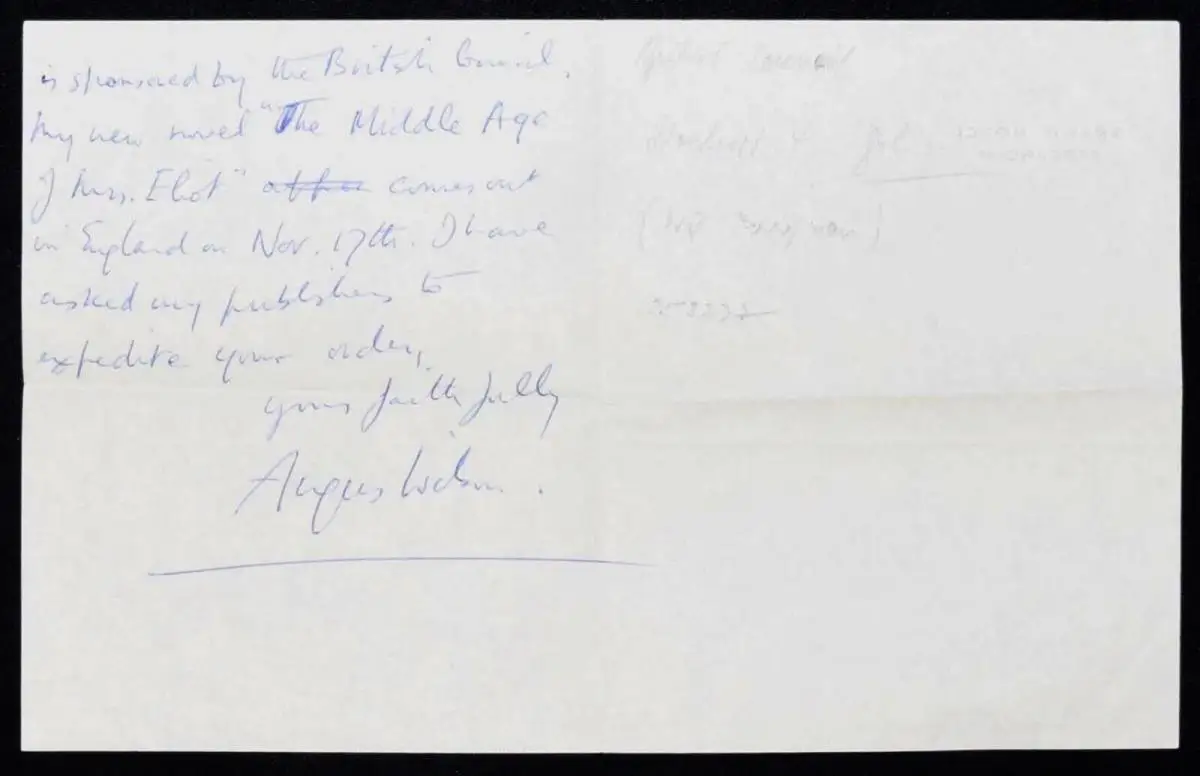 is sponsored by the British Council.
My new novel "The Middle Age
of Mrs. Eliot" comes out
in England on Nov. 17th. I have
asked my publishers to
expedite your order,
yours faithfully
Angus Wilson.
British Council
GRAND HOTEL